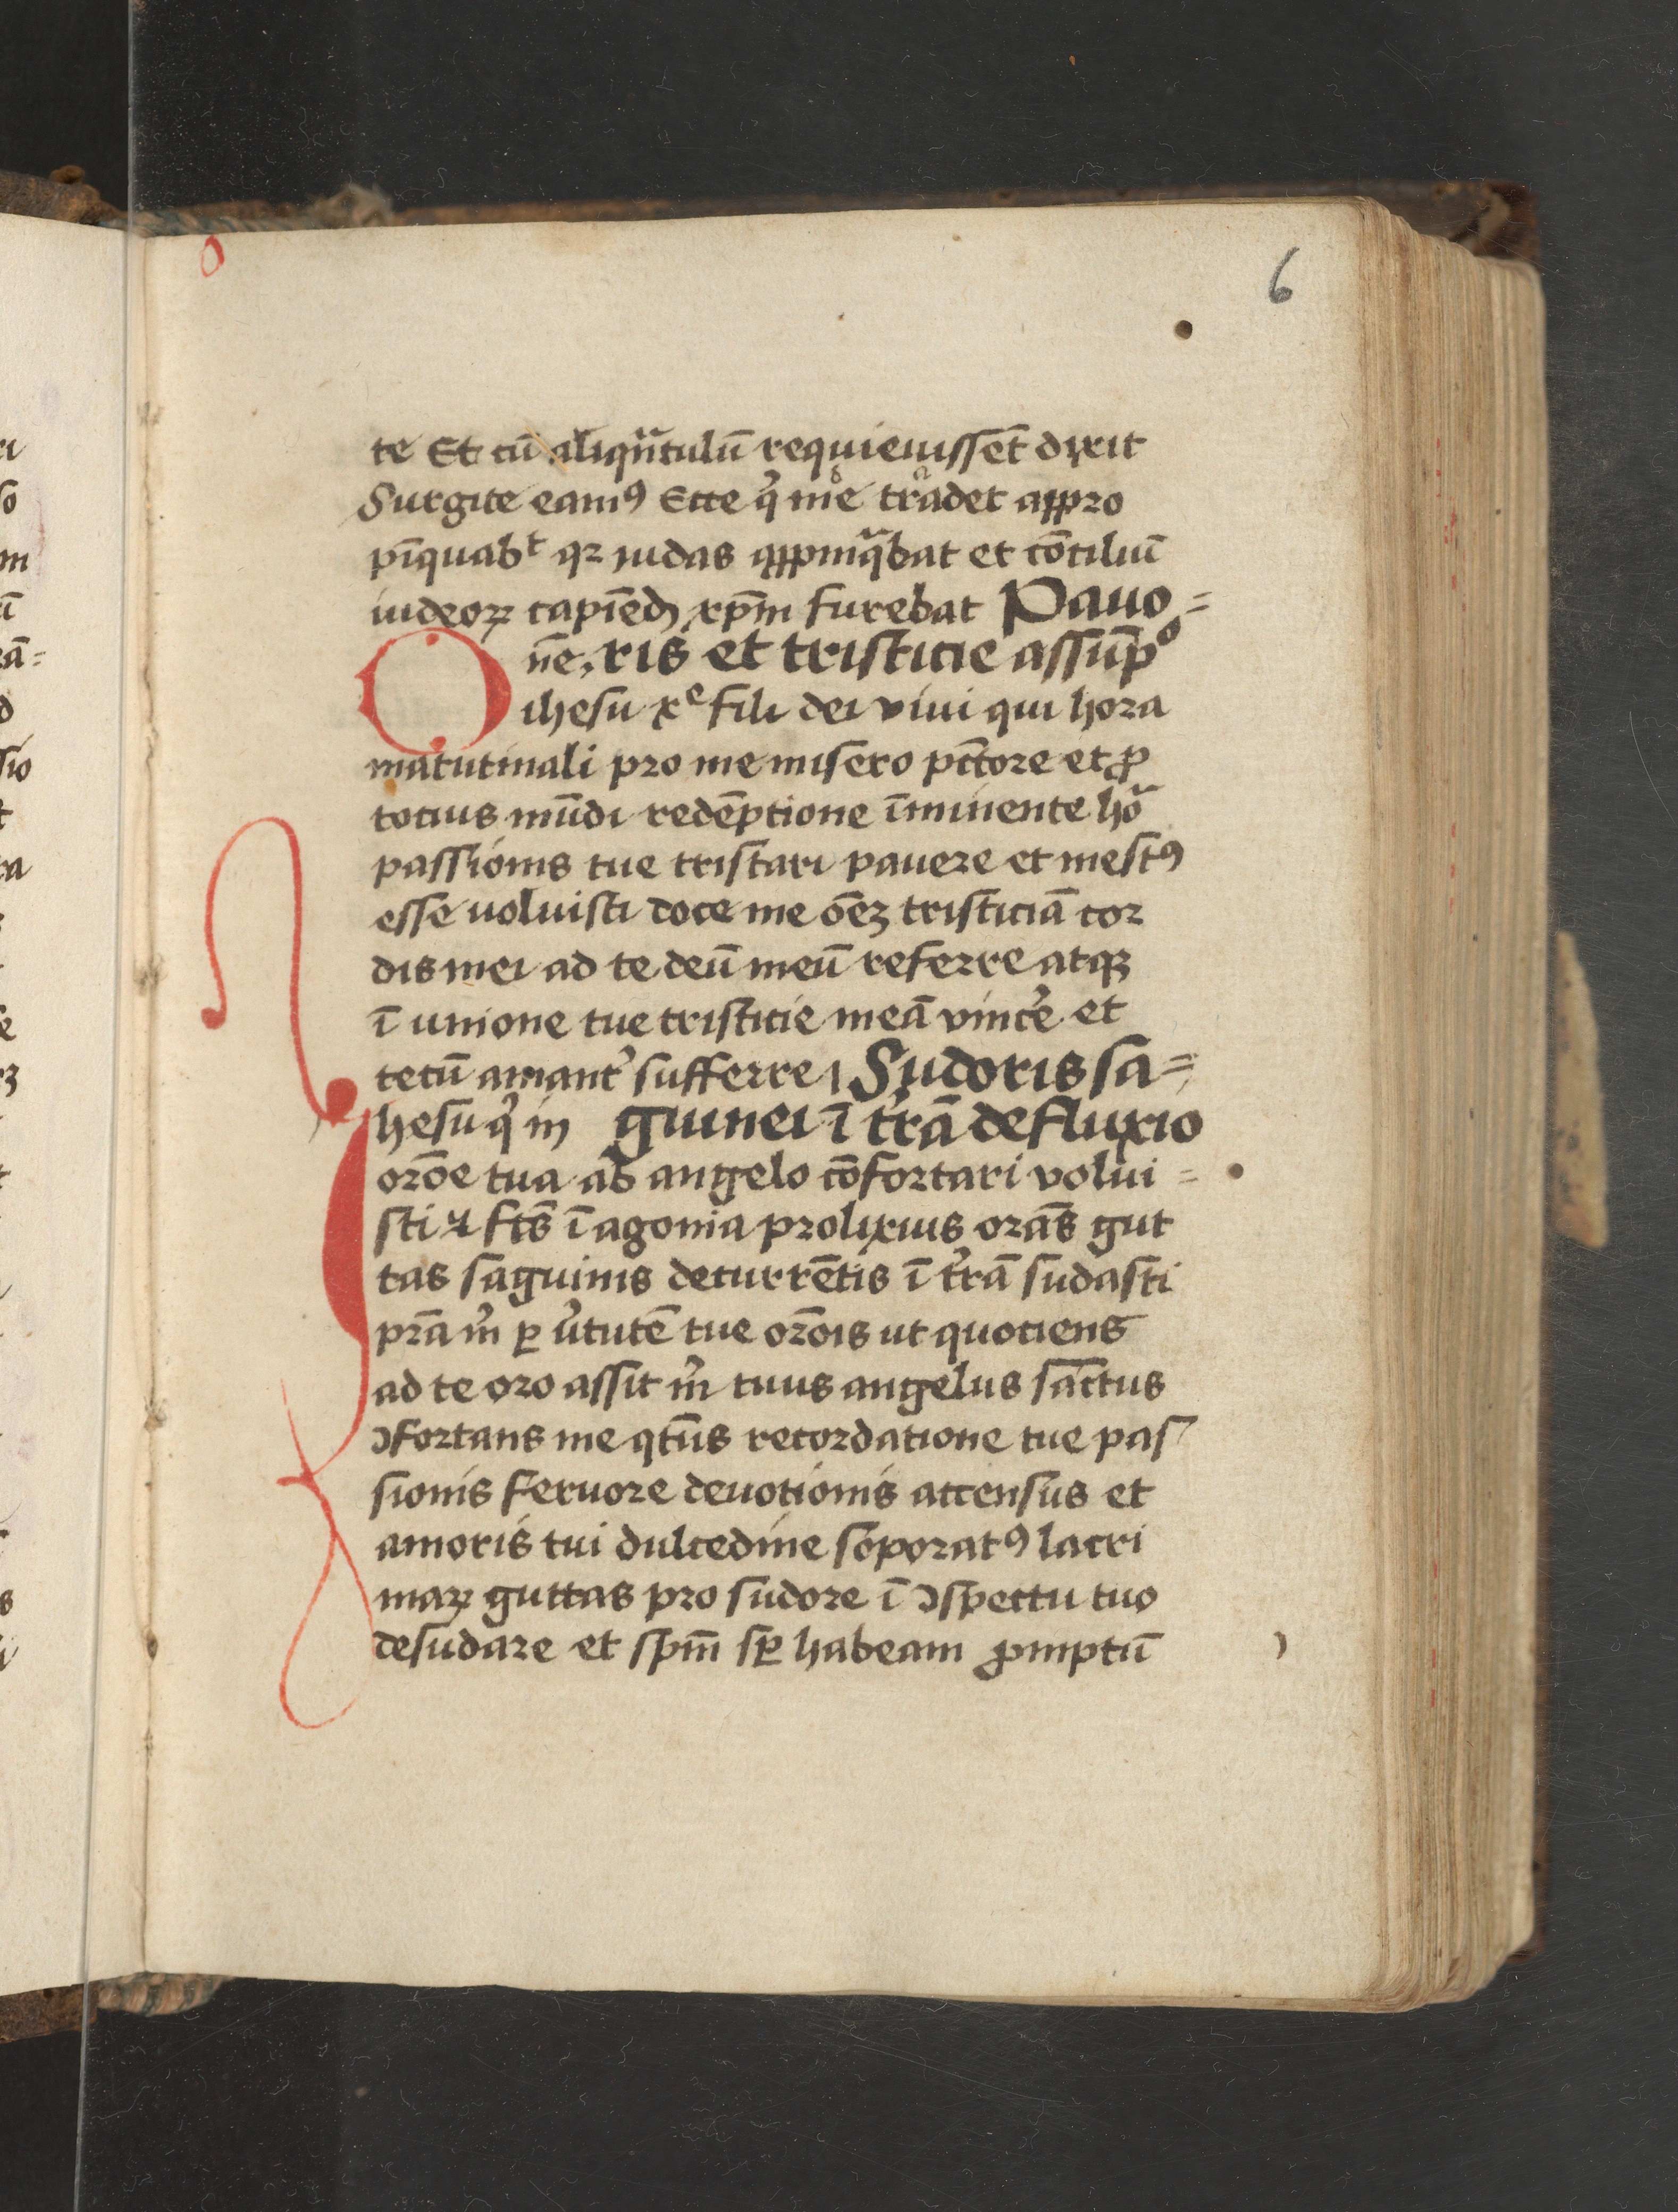 6
te Et cū aliqūtulū requieuissēt dixit
Surgite eamꝰ Ecce q̇ me tradet appro
pīquabᵗ qꝛ iudas appinq̄bat et cōciliū
iudeoꝝ capiēdū xp̄m furebat Pauo=
ōne ris et tristicie assūpᵒ
ihesu xᵉ fili dei viui qui hora
matutinali pro me misero pctōre et ꝓ
totius mūdi redēptione īminente horᵃ
passionis tue tristari pauere et mestꝰ
esse voluisti doce me ōēꝫ tristiciā cor
dis mei ad te deū meū referre atqꝫ
ī unione tue tristicie meā vincʾe et
tecū amantʾ sufferre Sudoris sa=
Ihesu q̇ in guinei ī trʾā defluxio
orōe tua ab angelo cōfortari volui=
sti et fc̄s ī agonia prolixius orās gut
tas saguinis decurrētis ī trʾā sudasti
prā m̄ ꝑ vʾtutē tue orōis ut quociens
ad te oro assit m̄ tuus angelus sanctus
ꝯfortans me qten̄s recordatione tue pas
sionis feruore deuotionis accensus et
amoris tui dulcedine soporatꝰ lacri
maꝝ guttas pro sudore ī ꝯspectu tuo
desudare et spm̄ sꝑ habeam ꝓmptū